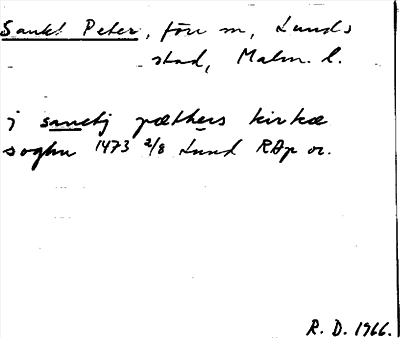 Sankt Peter, förs m, Lunds
stad, Malm. l.
j sanctj pæthers kirkæ
soghn 1473 2/8 Lund RAp or.
R. D. 1966.